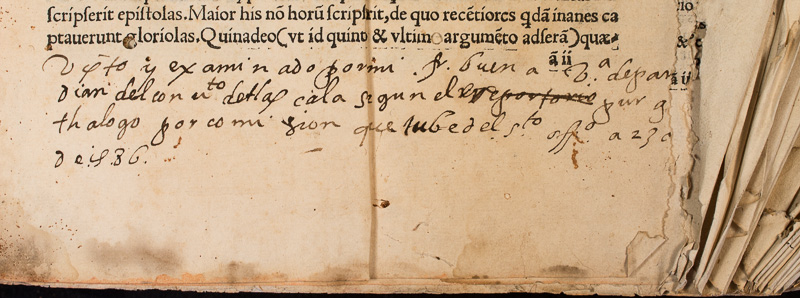 ſcripſerit epiſtolas. Maior his nõ horũ ſcripſrit, de quo recẽtiores qdã inanes ca
ptauerunt gloriolas. Quinadeo (vt id quint & vltim argumẽto adſerã) quæ
ã ii
Vysto y examinado por mi fr. buen a bͣ. de
Dian del conuto de tlaxcala segun el purga
thalogo por comision que tube del sto offo a 23
De 1586.